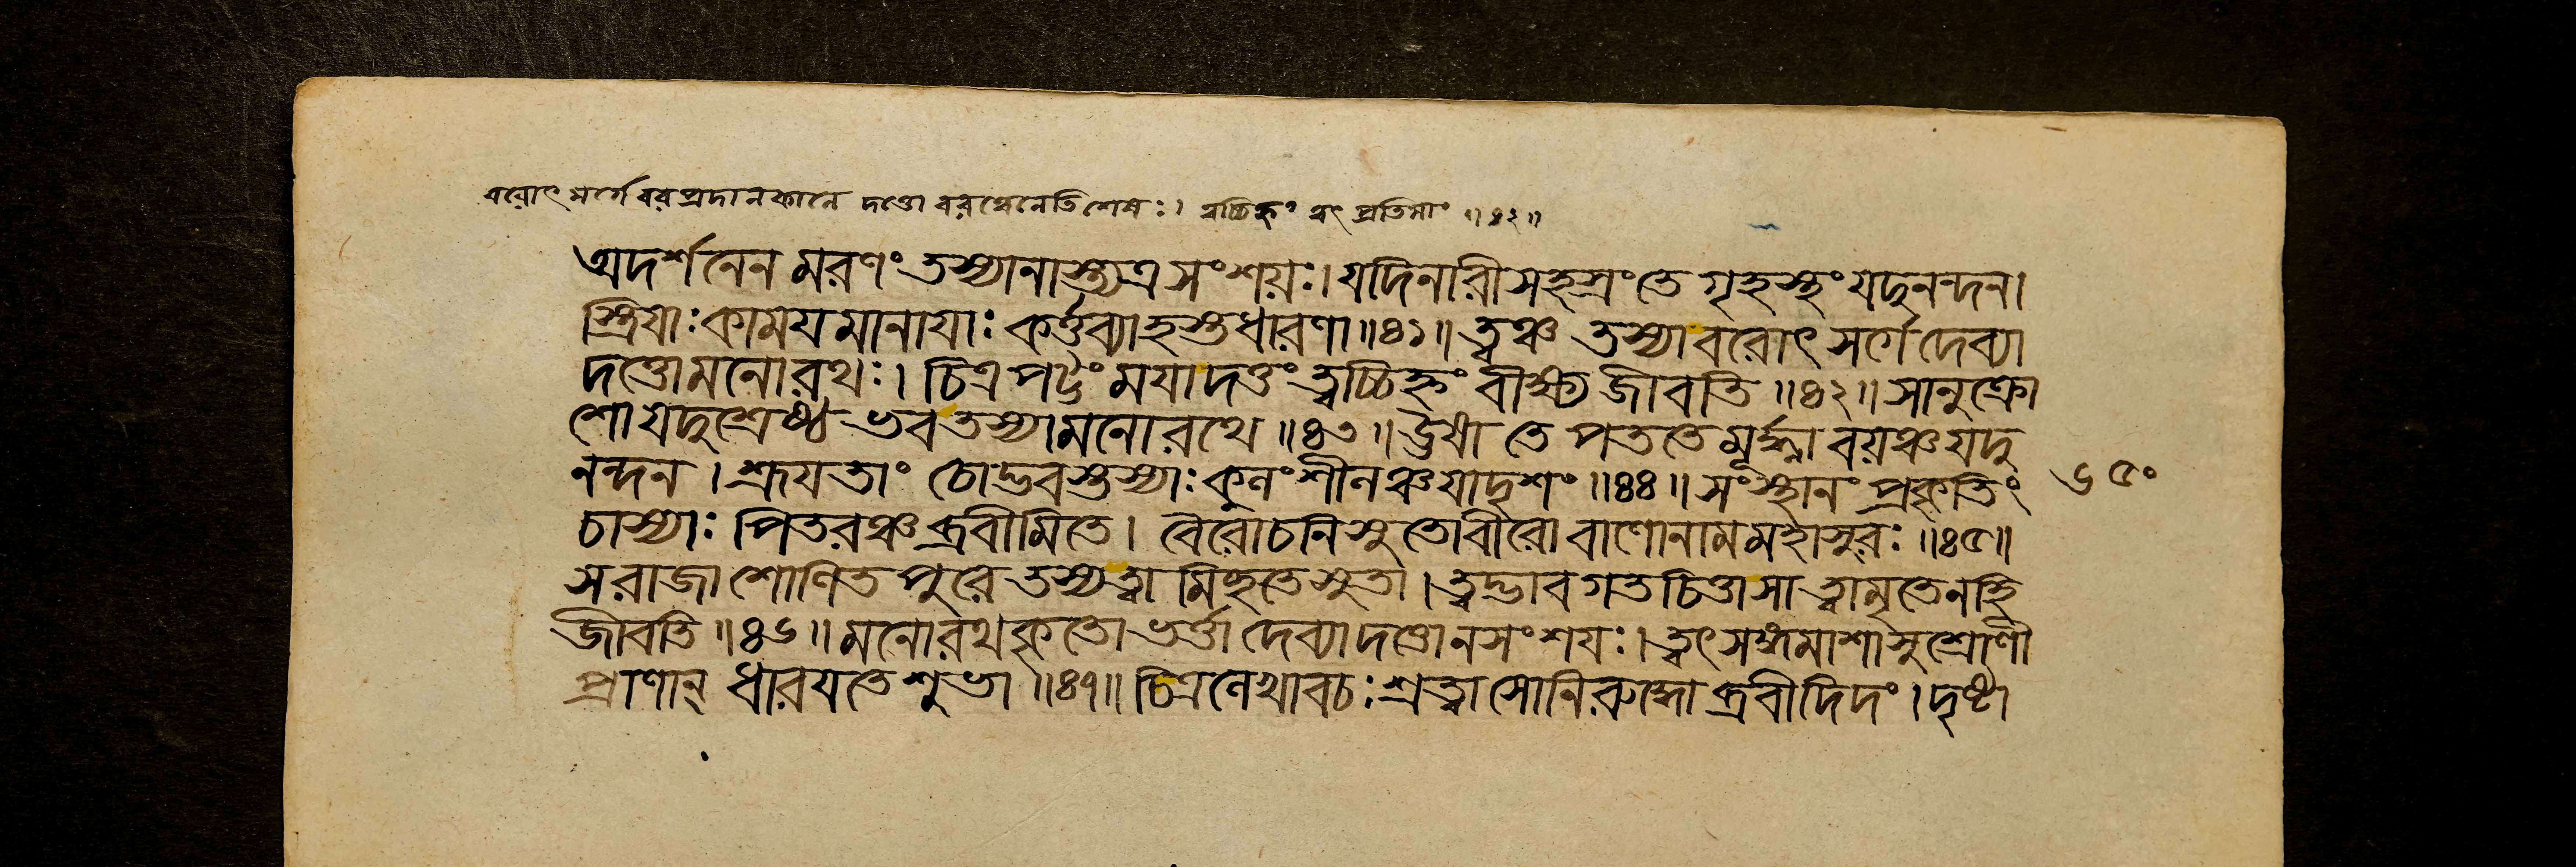 বরোৎসর্গে বরপ্রদানকালে দত্তো বরত্বেনেতিশেষঃ। ত্বচ্চিহ্নং ত্বৎ প্রতিমাং ॥৪২॥
অদর্শনেন মরণং তস্যানাস্ত্যত্র সংশয়ঃ। যদিনারীসহস্রংতে গৃহস্থং যদুনন্দন।
স্ত্রিযাঃ কামযমানাযাঃ কর্ত্তব্যাহস্তধারণা ॥৪১॥ ত্বঞ্চ তস্যাবরোৎসর্গে দেব্যা
দত্তোমনোরথঃ। চিত্রপট্টং মযাদত্তং ত্বচ্চিহ্নং বীক্ষ্য জীবতি ॥৪২॥ সানুক্রো
শো যদুশ্রেষ্ঠ ভবতস্যামনোরথে ॥৪৩॥ উষা তে পততে মূর্দ্ধ্না বয়ঞ্চ যদু
নন্দন। শ্রূযতাং চোদ্ভবস্তস্যাঃ কুলং শীলঞ্চযাদৃশং ॥৪৪॥ সংস্থানং প্রকৃতিং
৬৫০
চাস্যাঃ পিতরঞ্চ ব্রবীমিতে। বৈরোচনিসুতোবীরো বাণোনামমহাসুরঃ ॥৪৫॥
সরাজা শোণিতপুরে তস্যত্বামিহতে সুতা। ত্বদ্ভাবগতচিত্তাসা ত্বামৃতেনহি
জীবতি ॥৪৬॥ মনোরথকৃতো ভর্ত্তা দেব্যাদত্তোনসংশযঃ। ত্বৎসঙ্গমাশাসুশ্রোণী
প্রাণান্ ধারযতে শুভা ॥৪৭॥ চিত্রলেখাবচঃ শ্রুত্বা সোনিরুদ্ধো ব্রবীদিদং। দৃষ্টা